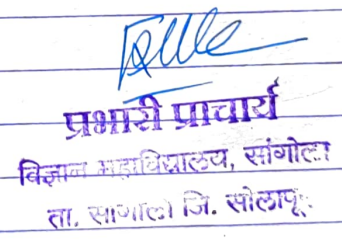 प्रभारी प्राचार्य
विज्ञान महाविद्यालय, सांगोला
ता. सांगोला जि. सोलापूर.